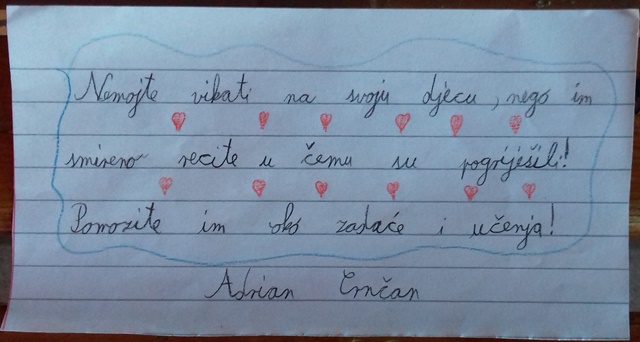 Nemojte vikati na svoju djecu, nego im
smireno recite u čemu su pogriješili!
Pomozite im oko zadaće i učenja!
Adrian Crnčan